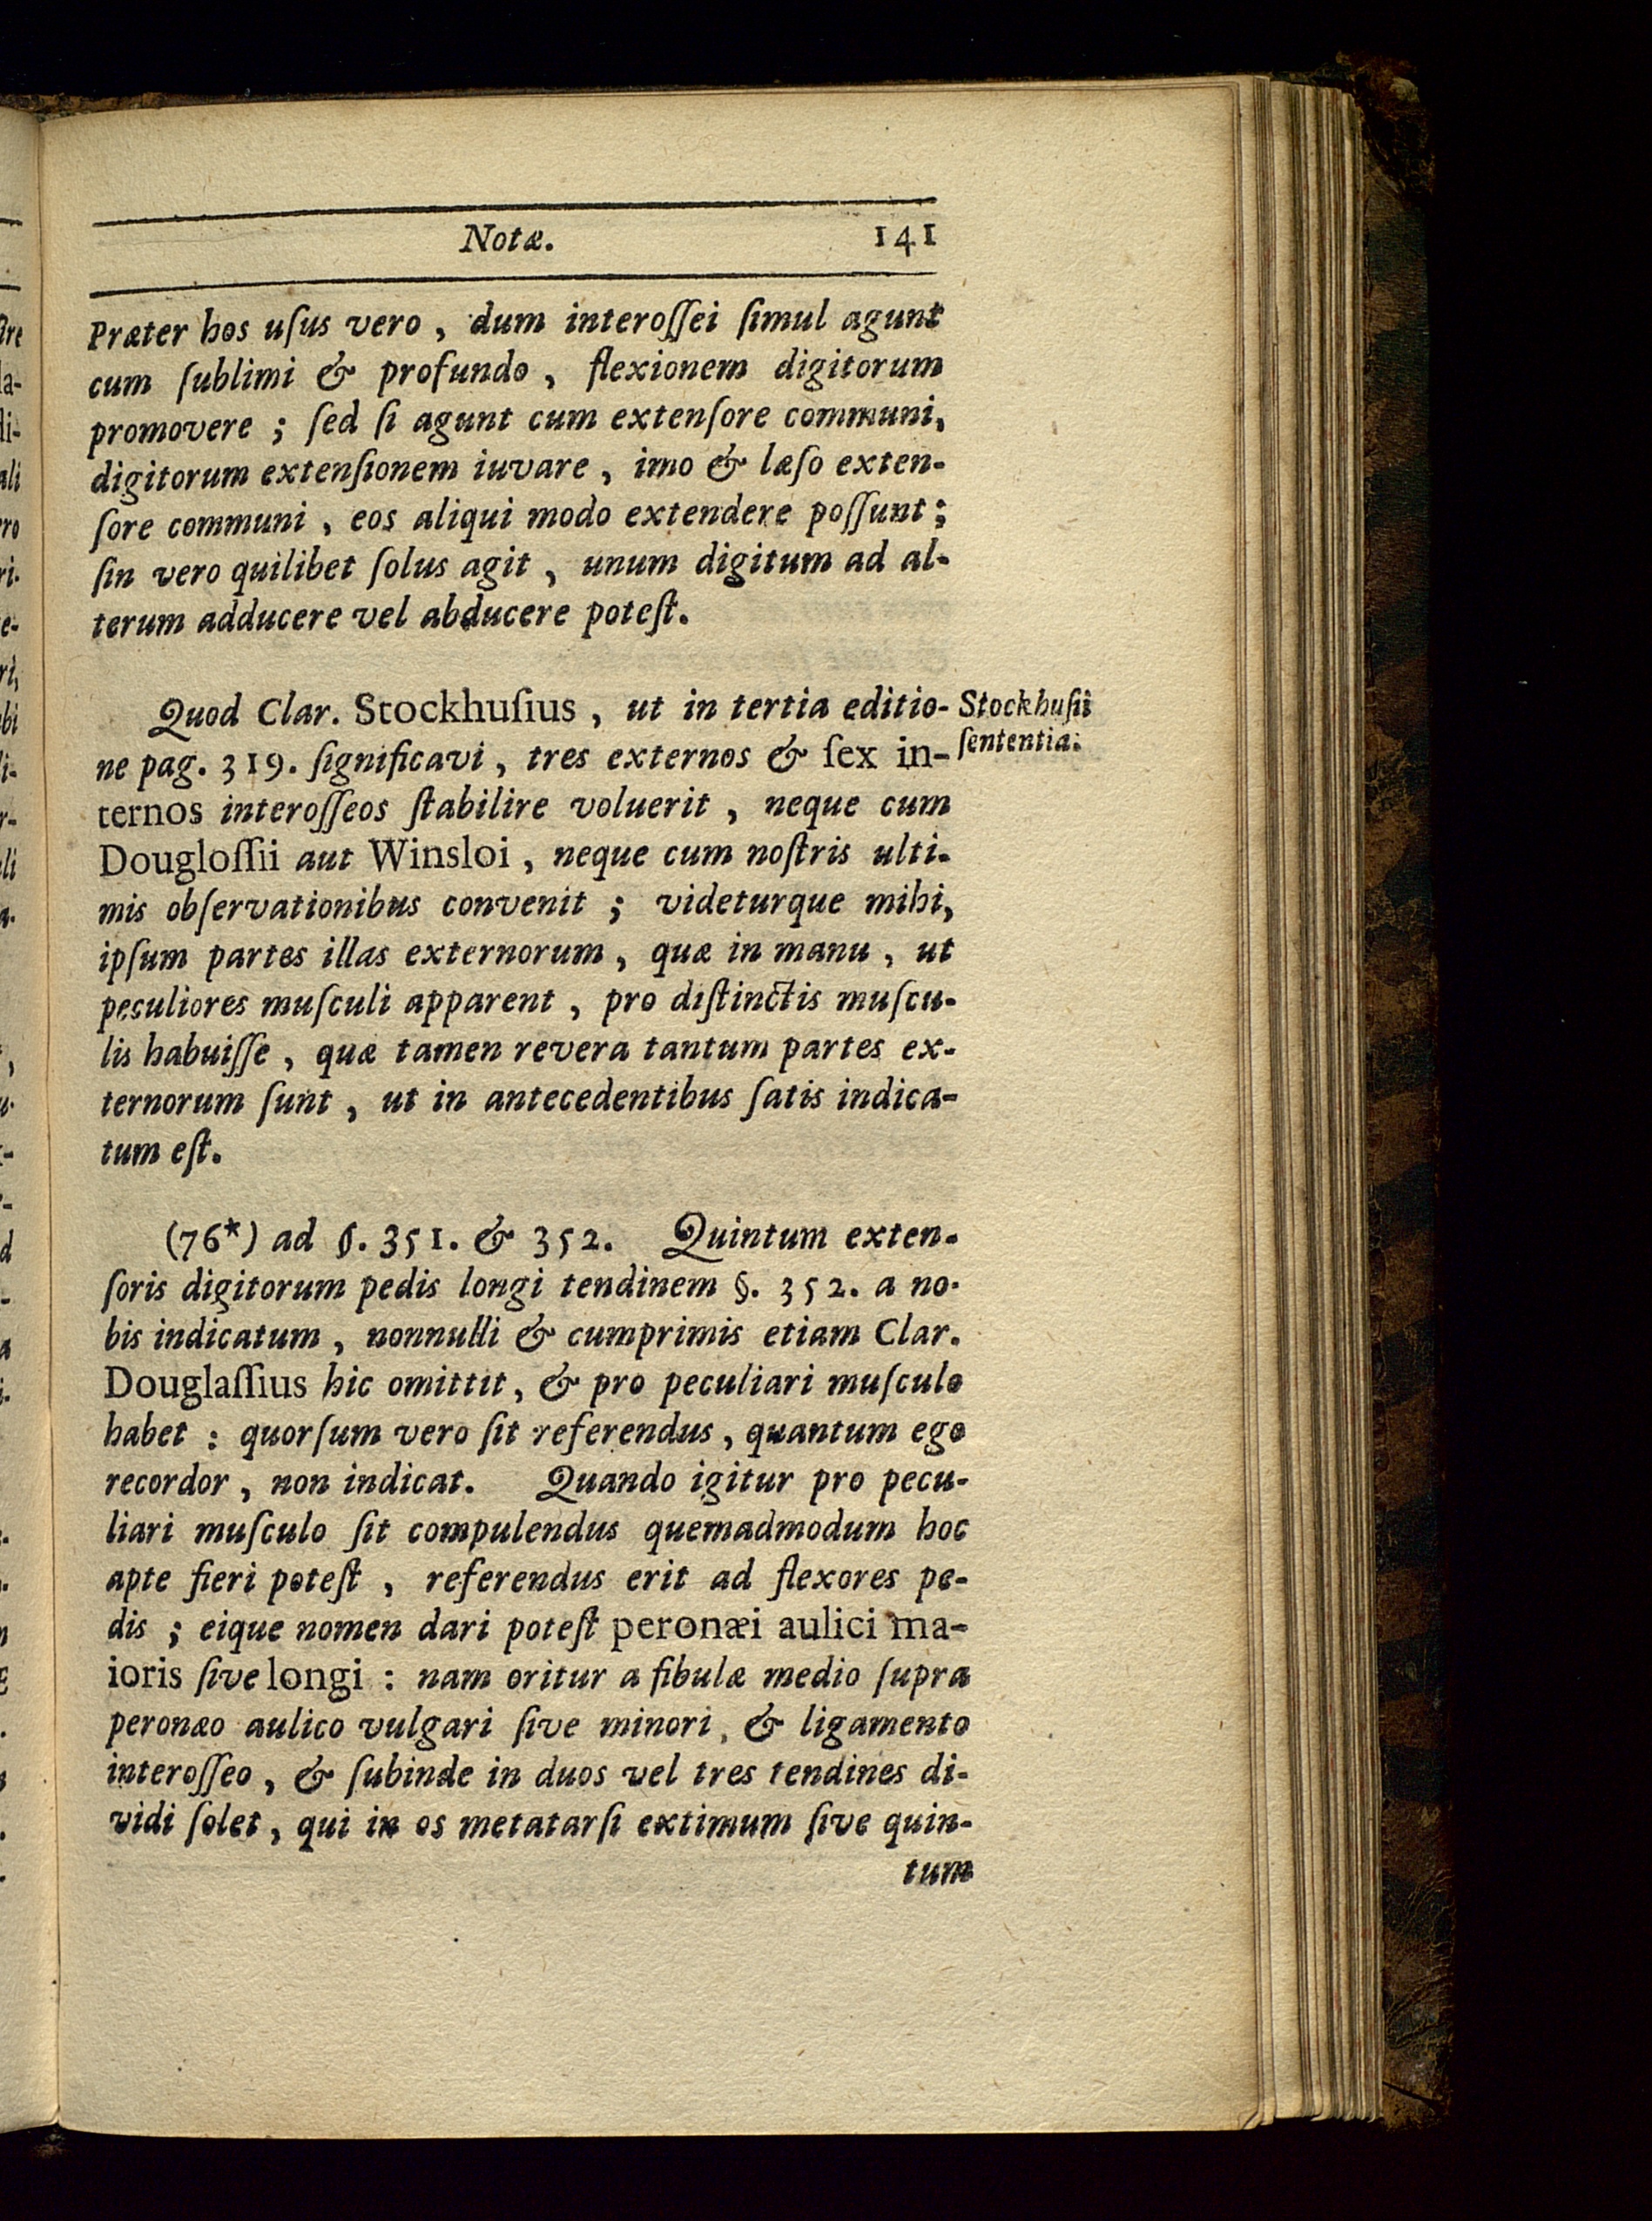 Notæ. 141
Præter hos uſus vero, dum interoſſei ſimul agunt
cum ſublimi & profundo, flexionem digitorum
promovere; ſed ſi agunt cum extenſore communi,
digitorum extenſionem iuvare, imo & læſo exten-
ſore communi, eos aliqui modo extendere poſſunt;
ſin vero quilibet ſolus agit, unum digitum ad al-
terum adducere vel abducere poteſt.
Quod Clar. Stockhuſius, ut in tertia editio-
Stockhuſii
ſententia.
ne pag. 319. ſignificavi, tres externos & ſex in-
ternos interoſſeos ſtabilire voluerit, neque cum
Dougloſſii aut Winsloi, neque cum noſtris ulti-
mis obſervationibus convenit; videturque mihi,
ipſum partes illas externorum, quæ in manu, ut
peculiores muſculi apparent, pro diſtinctis muſcu-
lis habuiſſe, quæ tamen revera tantum partes ex-
ternorum ſunt, ut in antecedentibus ſatis indica-
tum eſt.
(76*) ad §. 351. & 352. Quintum exten-
ſoris digitorum pedis longi tendinem §. 352. a no-
bis indicatum, nonnulli & cumprimis etiam Clar.
Douglaſſius hic omittit, & pro peculiari muſculo
habet: quorſum vero ſit referendus, quantum ego
recordor, non indicat. Quando igitur pro pecu-
liari muſculo ſit compulendus quemadmodum hoc
apte fieri poteſt, referendus erit ad flexores pe-
dis; eique nomen dari poteſt peronæi aulici ma-
ioris ſive longi: nam oritur a fibulæ medio ſupra
peronæo aulico vulgari ſive minori, & ligamento
interoſſeo, & ſubinde in duos vel tres tendines di-
vidi ſolet, qui in os metatarſi extimum ſive quin-
tum